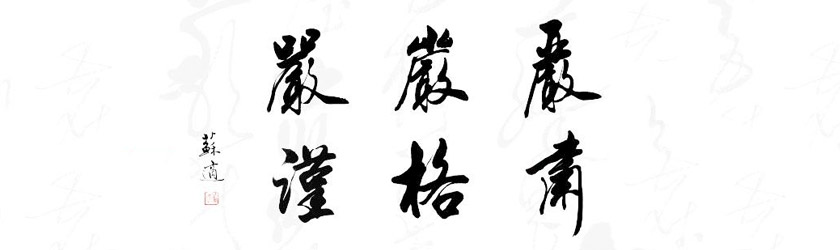 嚴肅
嚴格
嚴謹
蘇適